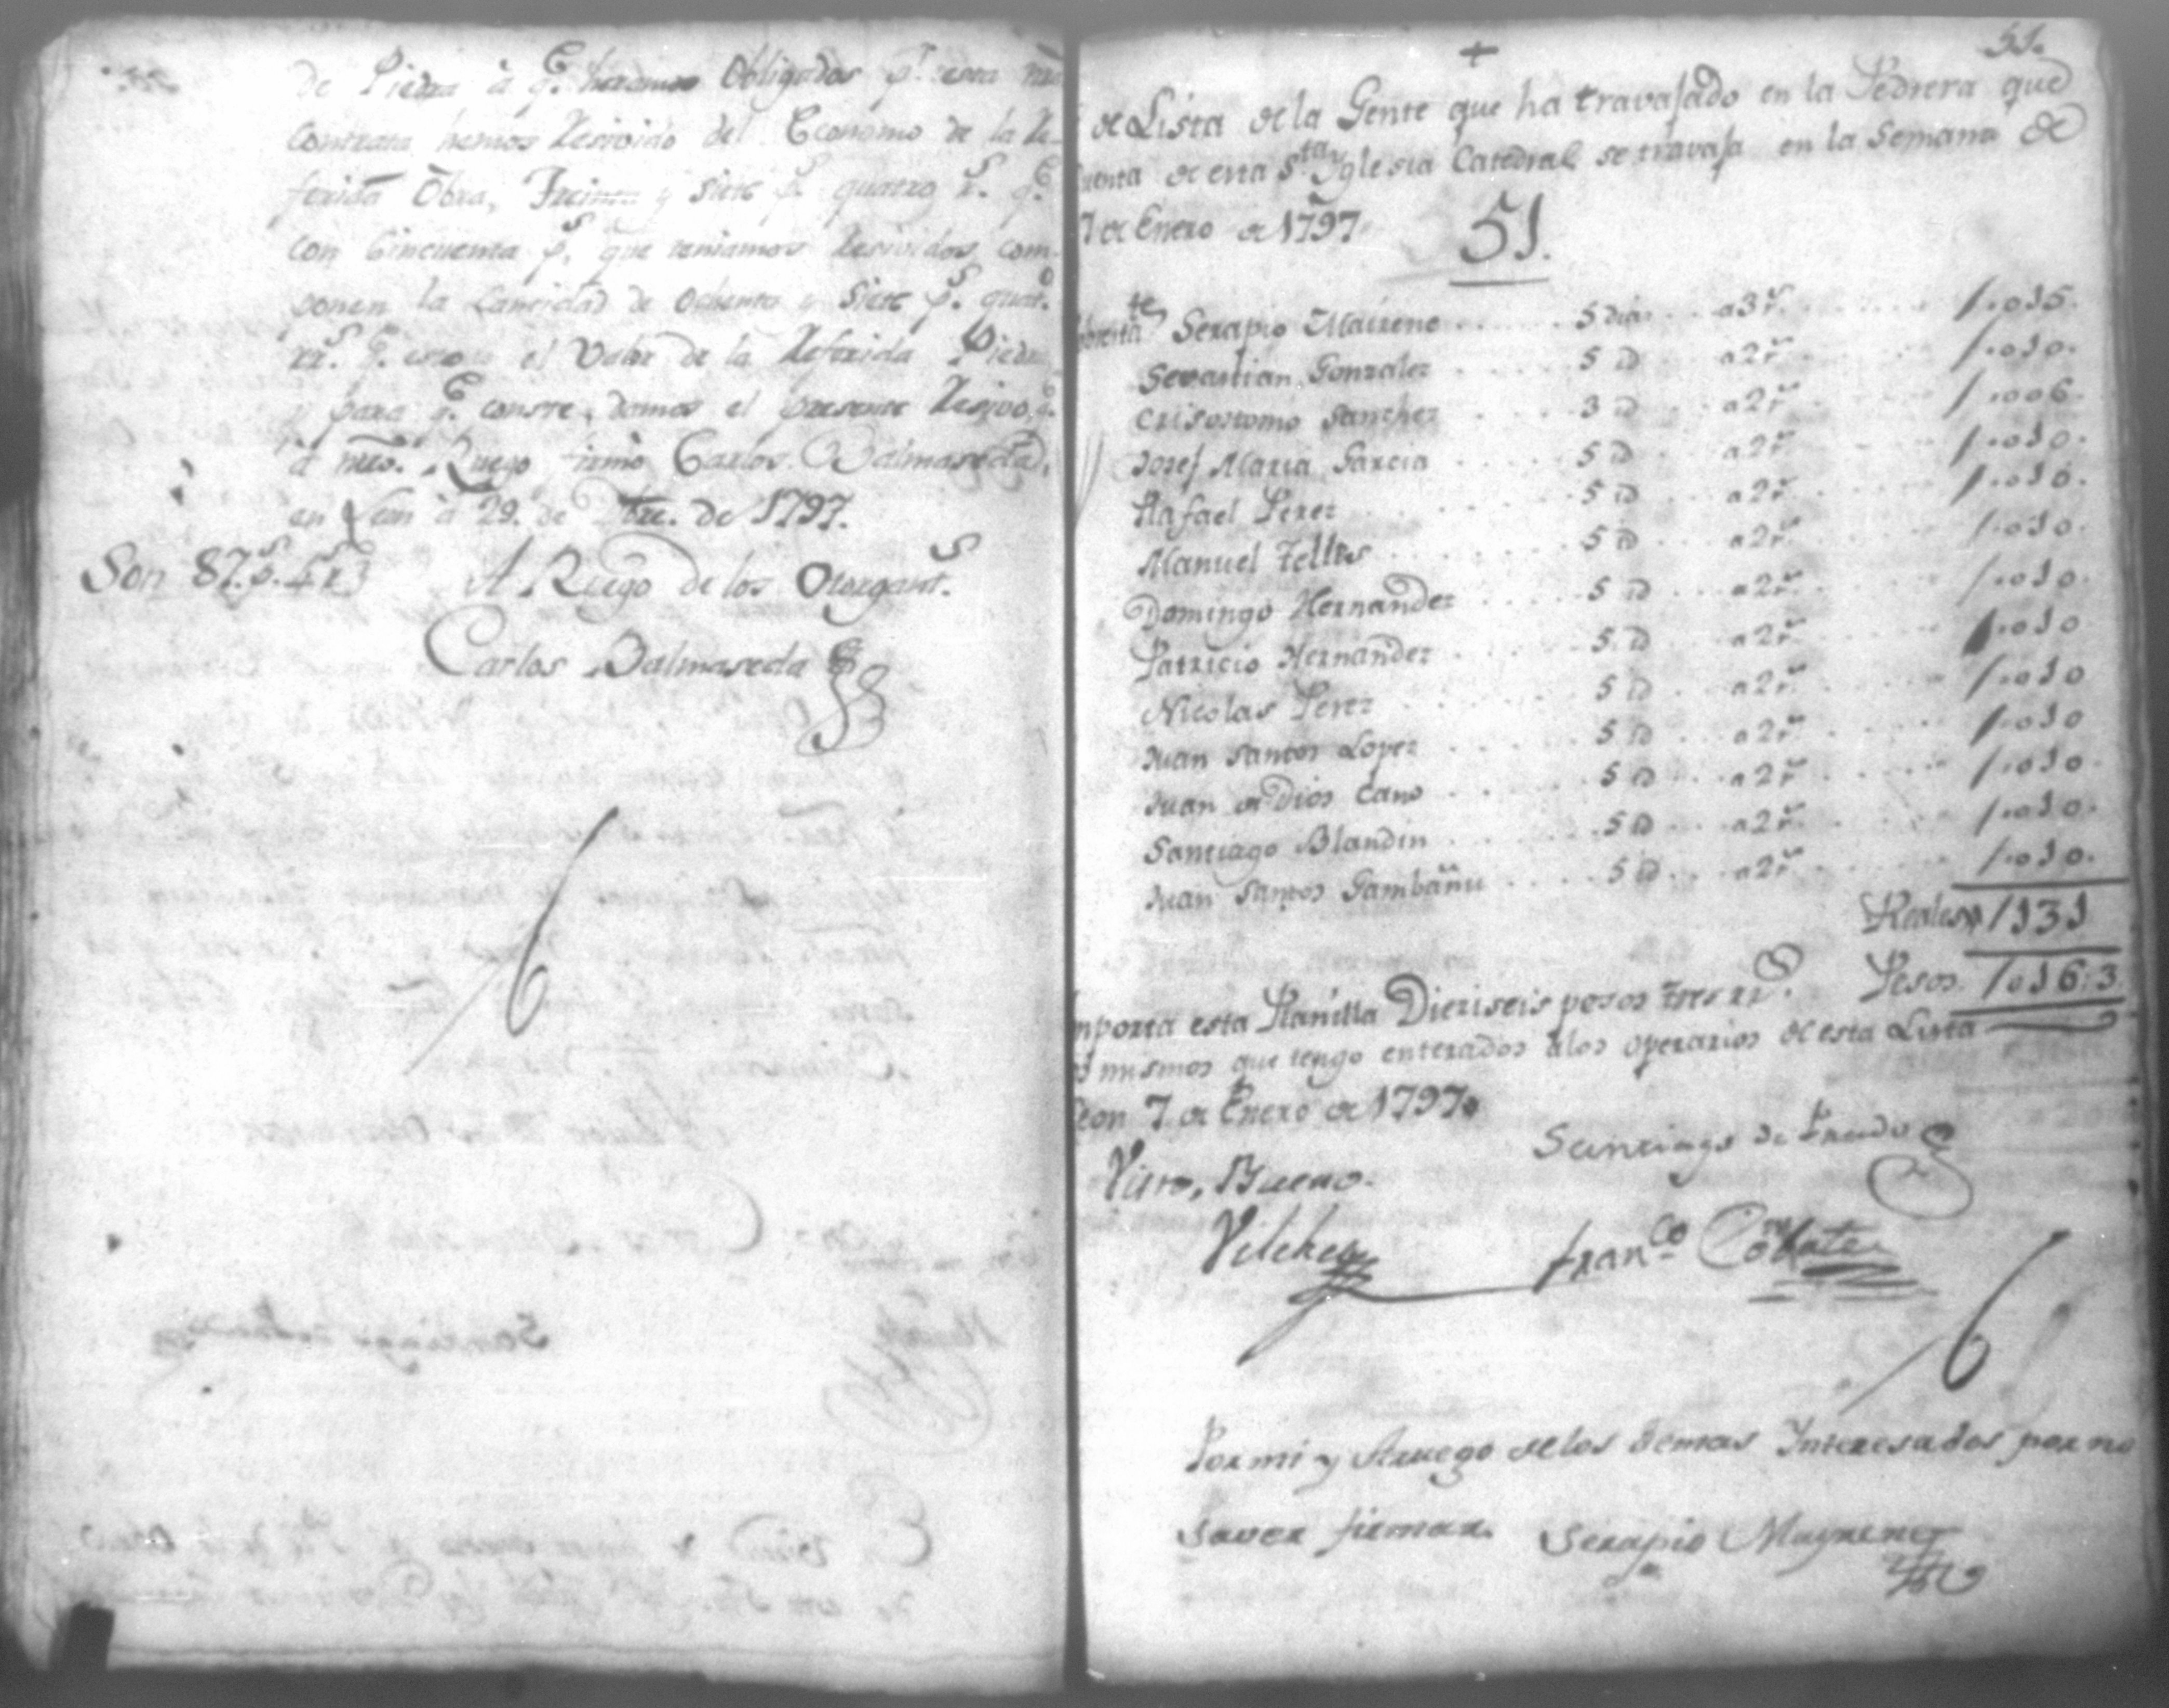 de Piedra á q.^e heramos Obligados p.^r esta
Contrata hemos Resivido del Economo de la Re-
ferida Obra, Treinta y Siete p.^s quatro r.^s q.^e
con Cincuenta p.^s que teniamos Resividos com-
ponen la Cantidad de Ochenta y Siete p.^s quat.^o
rr.^s q.^e es el Valor de la Referida Piedra
y para q.^e conste, damos el presente Resivo, q.^e
á nro. Ruego firmó Carlos Balmaseda,
en Leon á 29. de de 1797.
Son 87.p.^s 4 r.^s
A Ruego de los Otorgant.^s
Carlos Balmaseda
6
51.
de Lista de la Gente que ha travajado en la Pedrera que
de esta S.^ta Yglesia Catedral se travaja en la Semana de
7 de Enero de 1797
51.
Serapio Maireno 5 dias a 3 r.^s /..015.
Sevastian Gonzalez 5 id a 2 r.^s /..010.
Crisostomo Sanchez 3 id a 2 r.^s /..006.
Josef Maria Garcia 5 id a 2 r.^s /..010.
Rafael Perez 5 id a 2 r.^s /..010.
Manuel Telles 5 id a 2 r.^s /..010.
Domingo Hernandez 5 id a 2 r.^s /..010.
Patricio Hernandez 5 id a 2 r.^s /..010
Nicolas Perez 5 id a 2 r.^s /..010
Juan Santos Lopez 5 id a 2 r.^s /..010
Juan de Dios Cano 5 id a 2 r.^s /..010.
Santiago Blandin 5 id a 2 r.^s /..010.
Juan Santos 5 id a 2 r.^s /..010.
Reales /131
Pesos /016:3
mporta esta Planilla Dieziseis pesos tres rr.^s
mismos que tengo enterados a los operarios de esta Lista
Leon 7. de Enero de 1797.
Santiago de
Visto, Bueno.
Vilches
Fran.^co
6
Por mi y Aruego de los demas Interesados por no
saver firmar. Serapio Mayreno